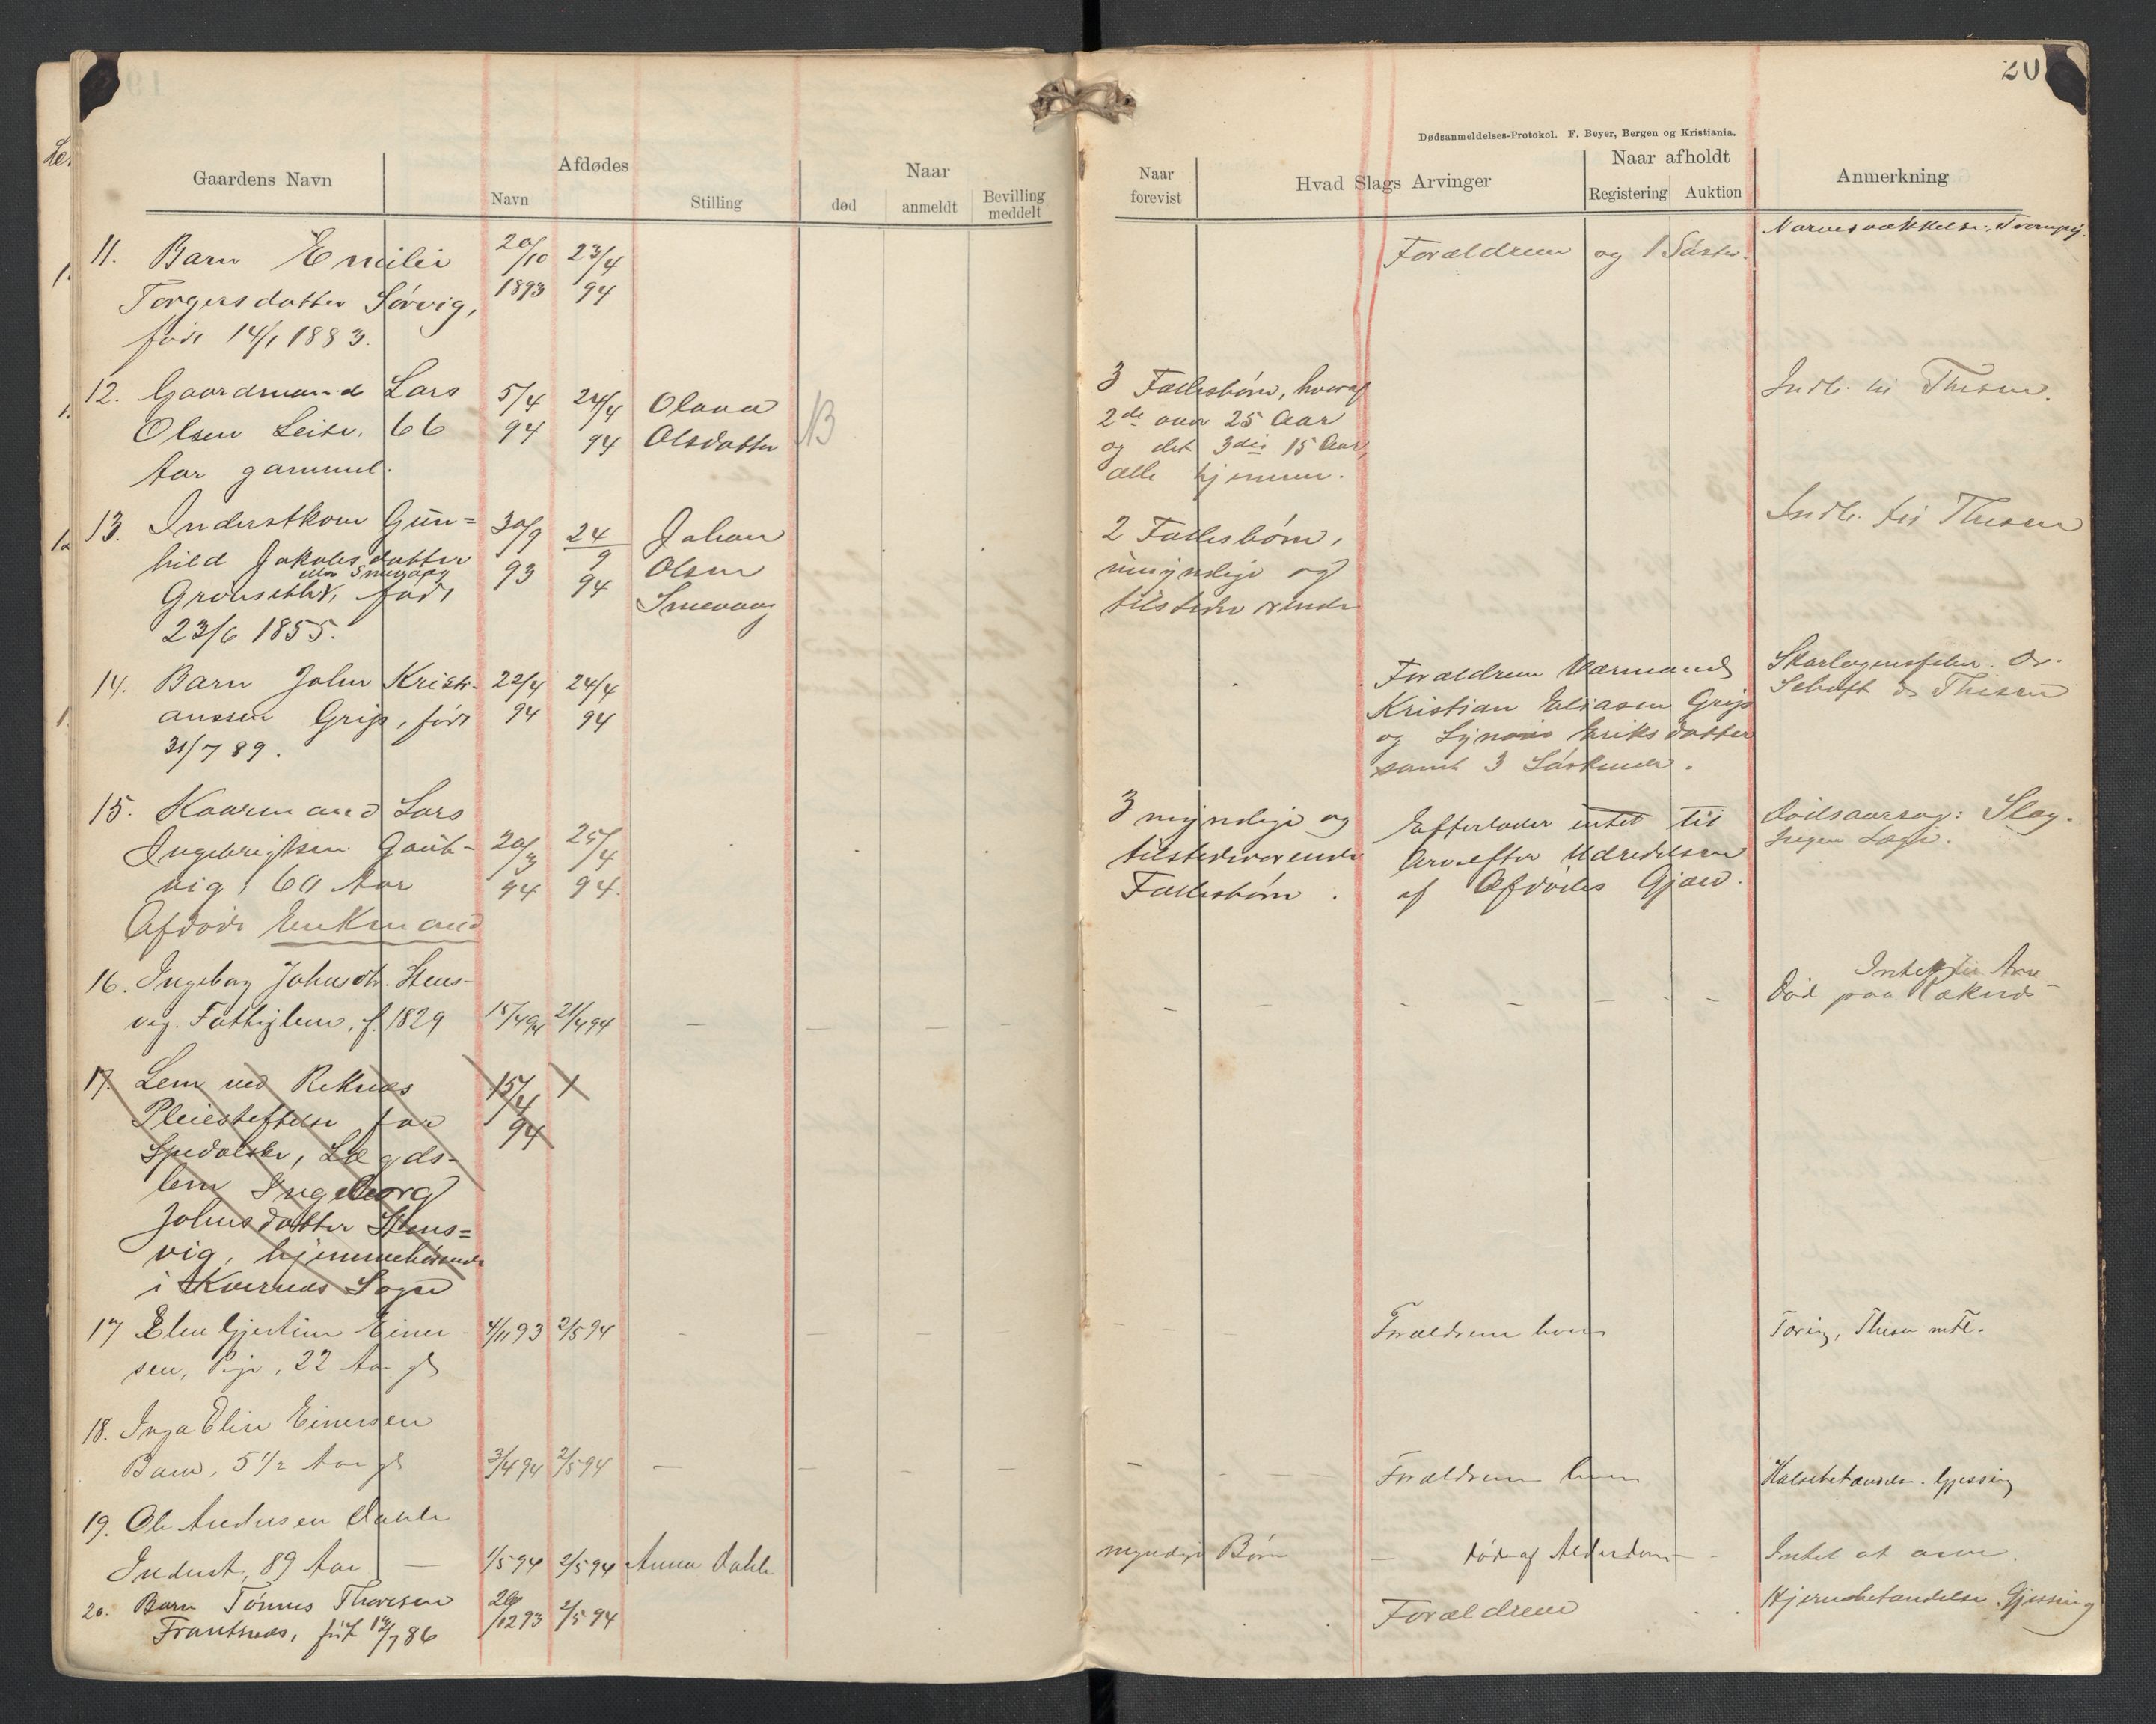 20
Dødsanmeldelses-Protokol. F. Beyer, Bergen og Kristiania.
Gaardens Navn
Afdødes
Navn
Stilling
Naar
død
anmeldt
Bevilling meddelt
Naar forevist
Hvad Slags Arvinger
Naar afholdt
Registering
Auktion
Anmerkning
11. Barn Emilie 20/10 23/4 Forældrene og 1 Søster.
Torgersdatter Sørvig, 1893 94
født 14/1 1883.
12. Gaardmand Lars 5/4 24/4 Olava 3 Fællesbørn, hvoraf Indb. til Thesen.
Olsen Leite, 66 94 94 Olsdatter 2de over 25 Aar
Aar gammel. og det 3die 15 Aar,
alle hjemme.
13. Inderstkone Gun= 30/9 24/9 Johan 2 Fællesbørn, Indb. til Thesen
hild Jakobsdatter 93 94 Olsen umyndige og
eller Smevaag
Grønseth, født Smevaag tilstedeværende
23/6 1855.
14. Barn John Kristi- 22/4 24/4 Forældrene Værmand Skarlagensfeber. Dr.
anssen Grip, født 94 94 Kristian Eliasen Grip Thesen
31/7 89. og Synnøve Eriksdatter
samt 3 Søskende.
15. Kaarmand Lars 3 myndige og Efterlader intet til Dødsaarsag: Slag.
Ingebrigtsen Gaut- 20/3 25/4 tilstedeværende Arv efter Udredelsen Ingen Læge.
vig, 60 Aar 94 94. Fællesbørn. af Afdødes Gjæld.
Afdøde Enkemand
16. Ingeborg Johnsdtr. Stens- Intet til Arv
vig. Fattiglem, f. 1829 15/4 94 21/4 94 — — — — Død paa Reknæs
17. Lem ved Reknæs 15/4
Pleiestiftelse for 94
Spedalske, Lægds-
lem Ingeborg
Johnsdatter Stens=
vig, hjemmehørende
i Kvernes Sogn
17 Elen Gjertine Einer- 4/11 93 2/5 94 — — — — Forældrene Tæring, Thesen
sen, Pige, 22 Aar gl
18. Inga Elise Einersen
Barn, 5 1/2 Aar gl 3/4 94 2/5 94 — — — — Forældrene Halsbetændelse. Gjessing
19. Ole Andersen Dahle
Inderst, 89 Aar — 1/5 94 2/5 94 Anna Dahle myndige Børn — død af Alderdom — Intet at arve.
20. Barn Tønnes Thoresen 26/12 93 2/5 94 Forældrene Hjernebetændelse. Gjessing
Frantsnes, født 12/7 86